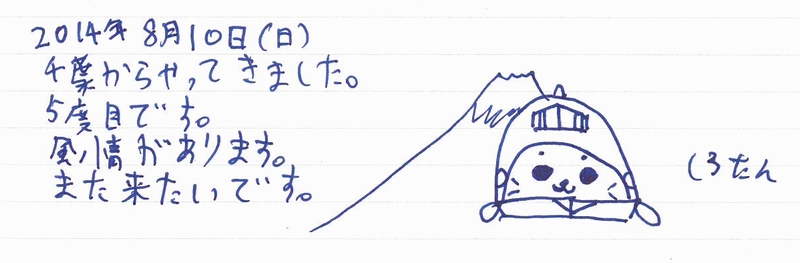 2014年 8月10日(日)
千葉からやってきました。
5度目です。
風情があります。
また来たいです。
しろたん